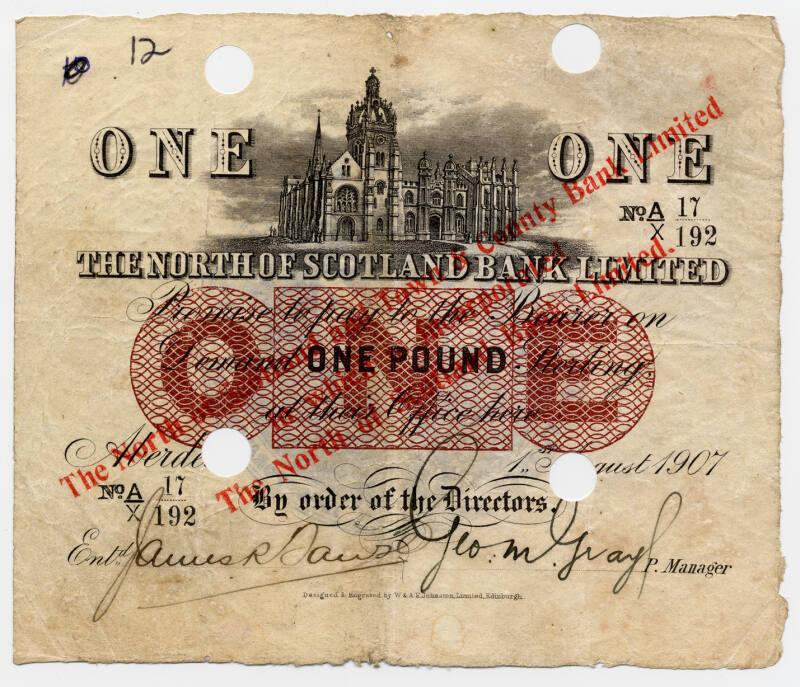 12
ONE ONE
No A 17
X 192
THE NORTH OF SCOTLAND BANK LIMITED
Promise to pay to the Bearer on
Demand ONE POUND Sterling
at their Office here
ONE
Aberde 1st August 1907
No A 17
X 192
By order of the Directors.
Entd. James R Geo. M. Gray P. Manager
Designed & Engraved by W & A.K. Johnston, Limited, Edinburgh.
The North Town & County Bank Limited
The North of Limited.